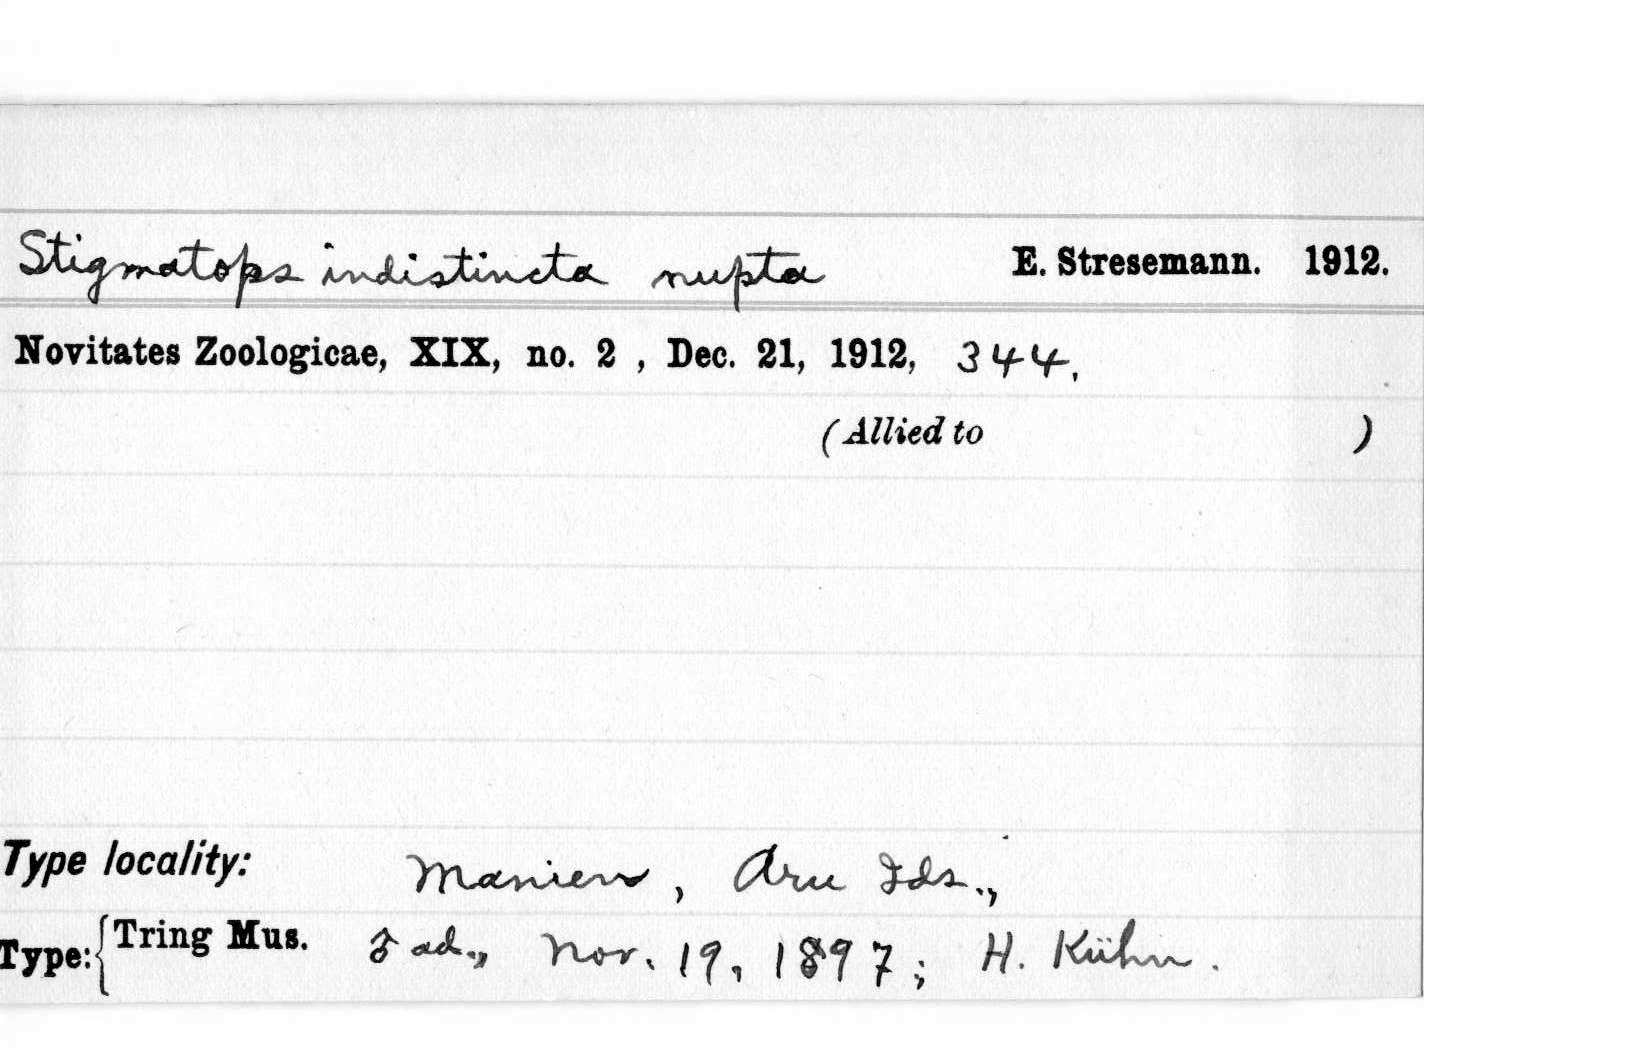 Stigmatops indistincta nupta E. Stresemann. 1912.
Novitates Zoologicae, XIX, no. 2 , Dec. 21, 1912, 344.
(Allied to )
Type locality: Manien, Aru Ids.,
Type: { Tring Mus. ♂ ad., Nov. 19, 1897; H. Kühn.